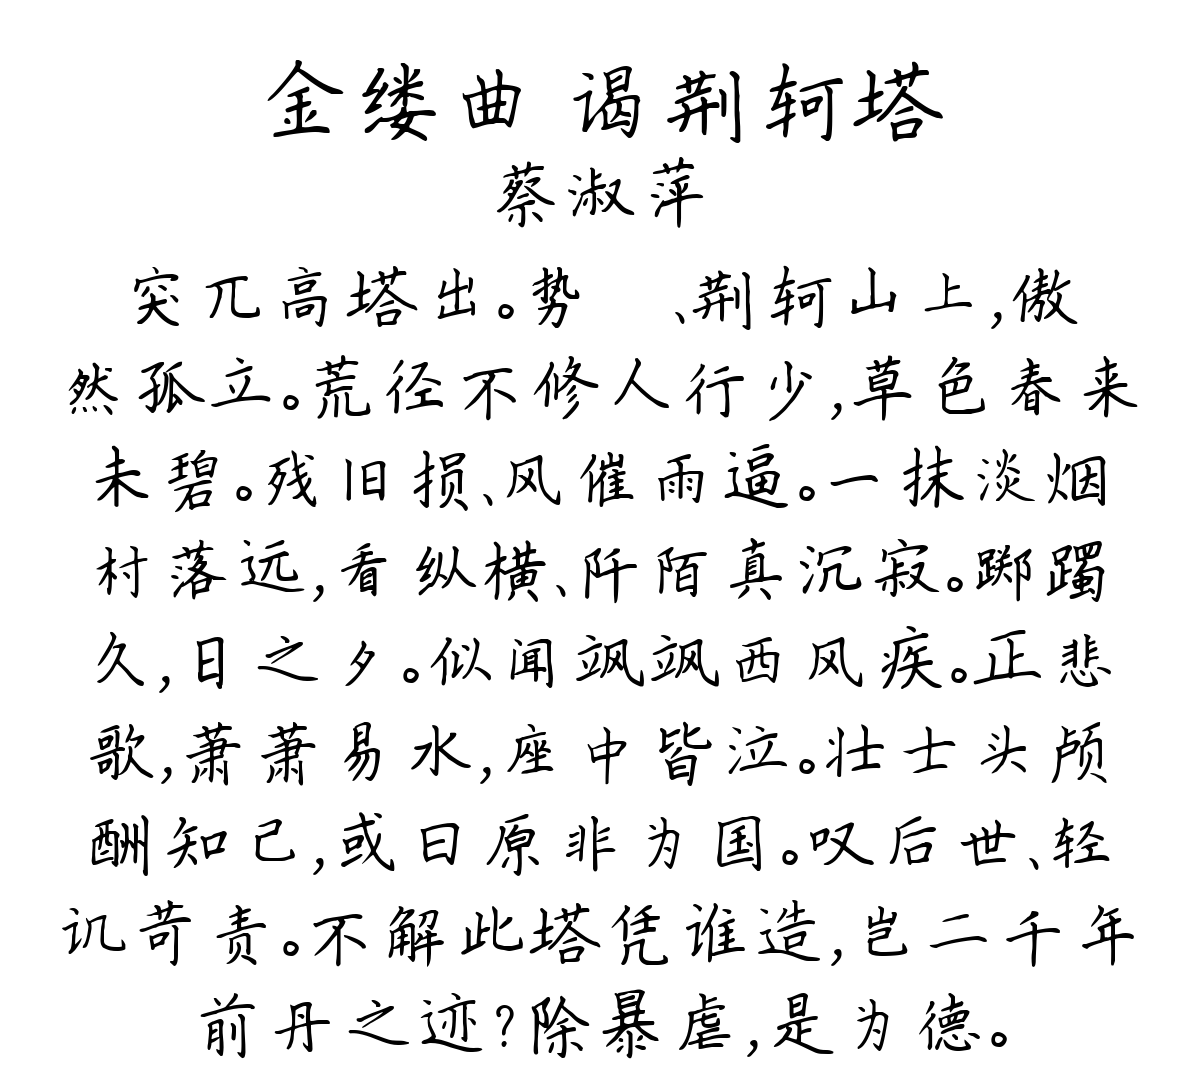 金缕曲 谒荆轲塔
蔡淑萍
突兀高塔出。势 、荆轲山上,傲
然孤立。荒径不修人行少,草色春来
未碧。残旧损、风催雨逼。一抹淡烟
村落远,看纵横、阡陌真沉寂。踯躅
久,日之夕。似闻飒飒西风疾。正悲
歌,萧萧易水,座中皆泣。壮士头颅
酬知己,或曰原非为国。叹后世、轻
讥苛责。不解此塔凭谁造,岂二千年
前丹之迹?除暴虐,是为德。